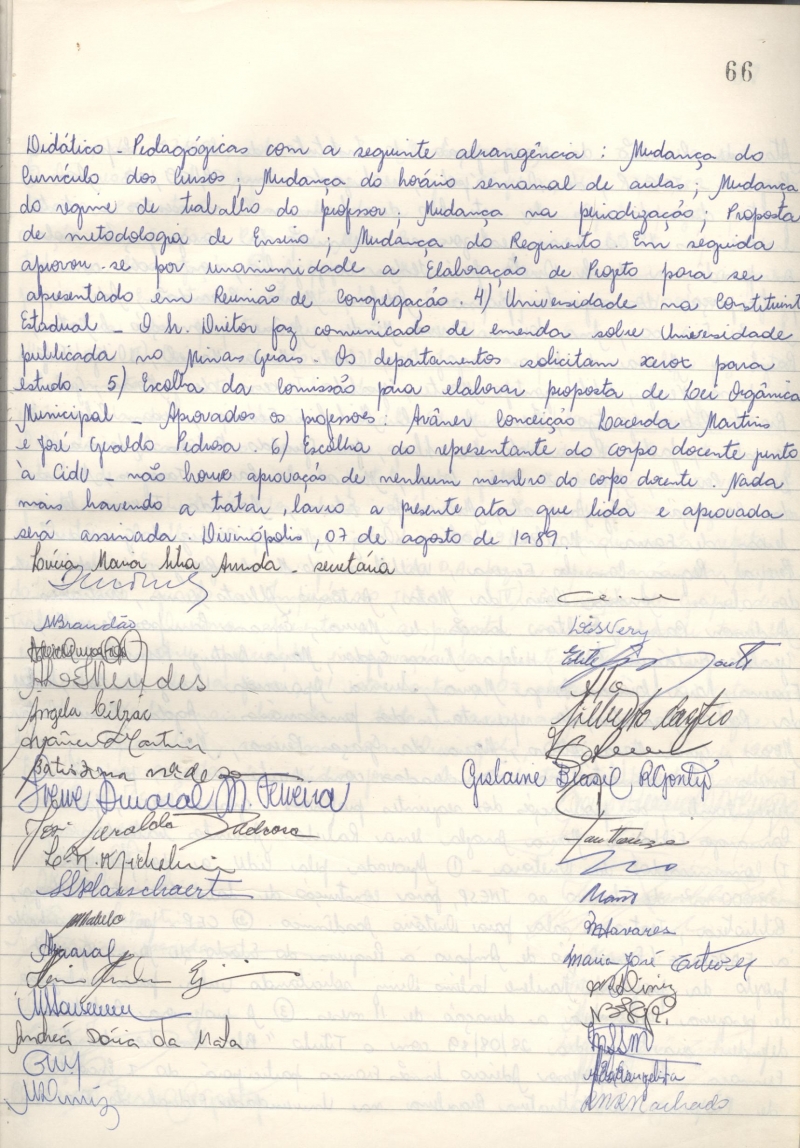 66
Didático - Pedagógicas com a seguinte abrangência : Mudança do
Currículo dos Cursos ; Mudança do horário semanal de aulas ; Mudança
do regime de trabalho do professor ; Mudança na periodização ; Proposta
de metodologia de Ensino ; Mudança do Regimento . Em seguida
aprovou-se por unanimidade a Elaboração de Projeto para ser
apresentado em Reunião de Congregação . 4) Universidade na Constituint
Estadual - O Sr. Diretor faz comunicado de emenda sobre Universidade
publicada no Minas Gerais . Os departamentos solicitam xerox para
estudo . 5) Escolha da Comissão para elaborar proposta de Lei Orgânica
Municipal - Aprovados os professores : Avâner Conceição Lacerda Martins
e José Geraldo Pedrosa . 6) Escolha do representante do corpo docente junto
à CidU - não houve aprovação de nenhum membro do corpo docente . Nada
mais havendo a tratar , lavro a presente ata que lida e aprovada
será assinada . Divinópolis , 07 de agosto de 1989.
Lúcia Maria Silva Arruda - secretária
MBrandão
Mendes
Angela
Avâner Martins
Gilberto Castro
Gislaine
Irene Amaral M. Teixeira
José Geraldo Pedrosa
Amaral
Tavares
Maria José
Andréa Dória da Mata
MDiniz
Machado